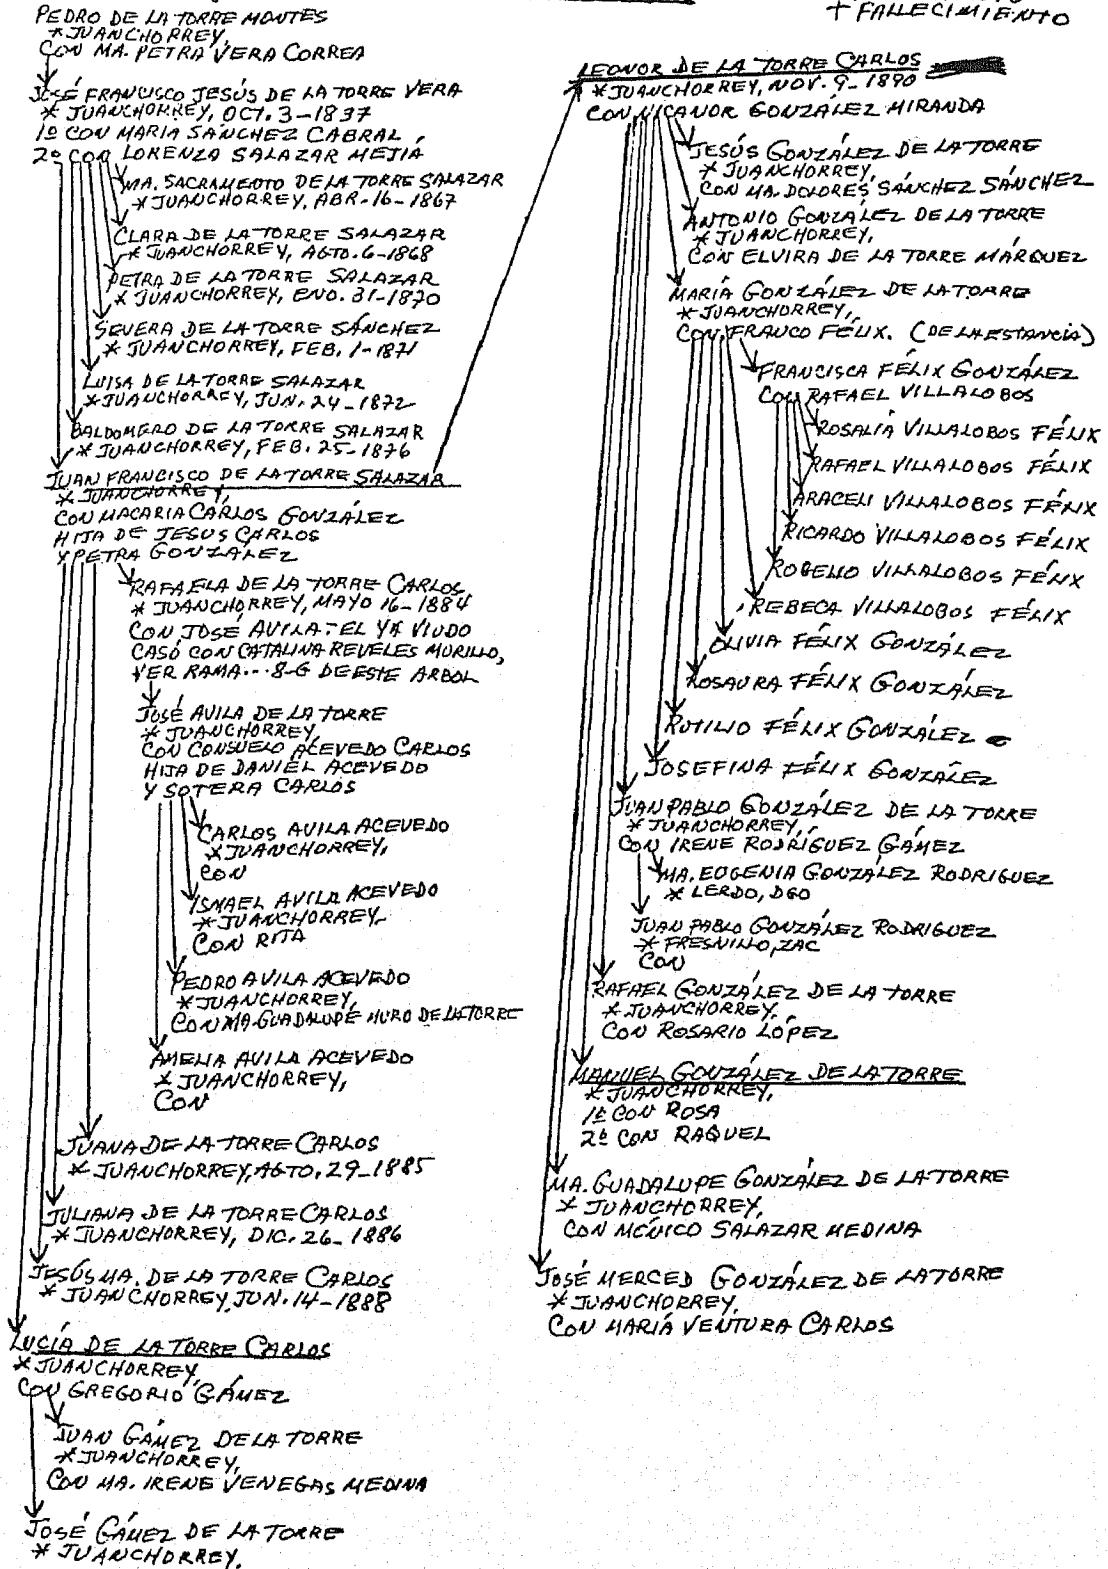 PEDRO DE LA TORRE MONTES
* JUANCHORREY,
CON MA. PETRA VERA CORREA
JOSÉ FRANCISCO JESÚS DE LA TORRE VERA
* JUANCHORREY, OCT. 3-1837
1º CON MARIA SÁNCHEZ CABRAL
2º CON LORENZA SALAZAR MEJÍA
MA. SACRAMENTO DE LA TORRE SALAZAR
* JUANCHORREY, ABR-16-1867
CLARA DE LA TORRE SALAZAR
* JUANCHORREY, AGTO. 6-1868
PETRA DE LA TORRE SALAZAR
* JUANCHORREY, ENO. 31-1870
SEVERA DE LA TORRE SÁNCHEZ
* JUANCHORREY, FEB. 1-1871
LUISA DE LA TORRE SALAZAR
* JUANCHORREY, JUN. 24-1872
BALDOMERO DE LA TORRE SALAZAR
* JUANCHORREY, FEB. 25-1876
JUAN FRANCISCO DE LA TORRE SALAZAR
* JUANCHORREY,
CON MACARIA CARLOS GONZÁLEZ
HIJA DE JESUS CARLOS
Y PETRA GONZÁLEZ
RAFAELA DE LA TORRE CARLOS
* JUANCHORREY, MAYO 16-1884
CON JOSÉ AVILA-EL YA VIUDO
CASÓ CON CATALINA REVELES MURILLO,
VER RAMA...8-G DE ESTE ARBOL
JOSÉ AVILA DE LA TORRE
* JUANCHORREY,
CON CONSUELO ACEVEDO CARLOS
HIJA DE DANIEL ACEVEDO
Y SOTERA CARLOS
CARLOS AVILA ACEVEDO
* JUANCHORREY,
CON
ISMAEL AVILA ACEVEDO
* JUANCHORREY,
CON RITA
PEDRO AVILA ACEVEDO
* JUANCHORREY,
CON MA. GUADALUPE MURO DE LA TORRE
AMELIA AVILA ACEVEDO
* JUANCHORREY,
CON
JUANA DE LA TORRE CARLOS
* JUANCHORREY, AGTO. 29-1885
JULIANA DE LA TORRE CARLOS
* JUANCHORREY, DIC. 26-1886
JESÚS MA. DE LA TORRE CARLOS
* JUANCHORREY, JUN. 14-1888
LUCÍA DE LA TORRE CARLOS
* JUANCHORREY,
CON GREGORIO GÁMEZ
JUAN GÁMEZ DE LA TORRE
* JUANCHORREY,
CON MA. IRENE VENEGAS MEDINA
JOSÉ GÁMEZ DE LA TORRE
* JUANCHORREY.
+ FALLECIMIENTO
LEONOR DE LA TORRE CARLOS
* JUANCHORREY, NOV. 9-1890
CON NICANOR GONZÁLEZ MIRANDA
JESÚS GONZÁLEZ DE LA TORRE
* JUANCHORREY,
CON MA. DOLORES SÁNCHEZ SÁNCHEZ
ANTONIO GONZÁLEZ DE LA TORRE
* JUANCHORREY,
CON ELVIRA DE LA TORRE MÁRQUEZ
MARÍA GONZÁLEZ DE LA TORRE
* JUANCHORREY,
CON FRANCO FÉLIX. (DE LA ESTANCIA)
FRANCISCA FÉLIX GONZÁLEZ
CON RAFAEL VILLALOBOS
ROSALÍA VILLALOBOS FÉLIX
RAFAEL VILLALOBOS FÉLIX
ARACELI VILLALOBOS FÉLIX
RICARDO VILLALOBOS FÉLIX
ROGELIO VILLALOBOS FÉLIX
REBECA VILLALOBOS FÉLIX
OLIVIA FÉLIX GONZÁLEZ
ROSAURA FÉLIX GONZÁLEZ
RUTILIO FÉLIX GONZÁLEZ
JOSEFINA FÉLIX GONZÁLEZ
JUAN PABLO GONZÁLEZ DE LA TORRE
* JUANCHORREY,
CON IRENE RODRÍGUEZ GÁMEZ
MA. EUGENIA GONZÁLEZ RODRIGUEZ
* LERDO, DGO
JUAN PABLO GONZÁLEZ RODRIGUEZ
* FRESNILLO, ZAC
CON
RAFAEL GONZÁLEZ DE LA TORRE
* JUANCHORREY.
CON ROSARIO LÓPEZ
MANUEL GONZÁLEZ DE LA TORRE
* JUANCHORREY,
1º CON ROSA
2º CON RAQUEL
MA. GUADALUPE GONZÁLEZ DE LA TORRE
* JUANCHORREY,
CON MÓNICO SALAZAR MEDINA
JOSÉ MERCED GONZÁLEZ DE LA TORRE
* JUANCHORREY,
CON MARÍA VENTURA CARLOS